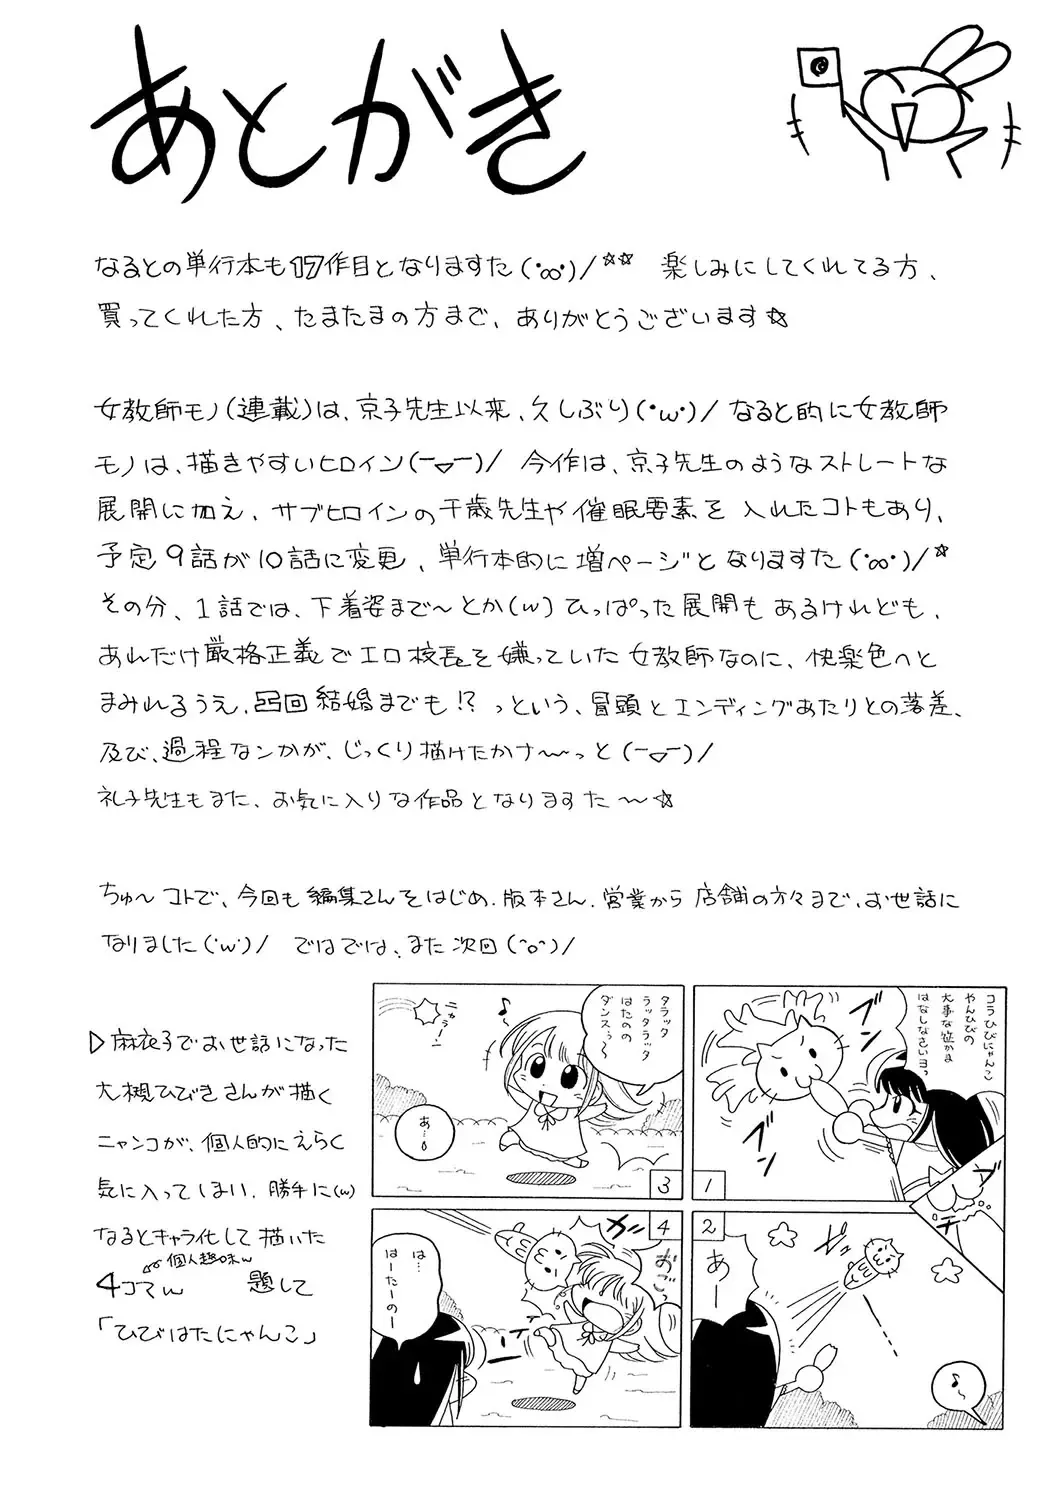 あとがき
なるとの単行本も17作目となりますた(･ω･)/☆☆ 楽しみにしてくれてる方、
買ってくれた方、たまたまの方まで、ありがとうございます☆
女教師モノ(連載)は、京子先生以来、久しぶり(･ω･)/ なると的に女教師
モノは、描きやすいヒロイン(￣▽￣)/ 今作は、京子先生のようなストレートな
展開に加え、サブヒロインの千歳先生や催眠要素を入れたコトもあり、
予定9話が10話に変更、単行本的に増ページとなりますた(･ω･)/☆
その分、1話では、下着姿まで〜とか(w)ひっぱった展開もあるけれども、
あれだけ厳格正義でエロ校長を嫌っていた女教師なのに、快楽色へと
まみれるうえ、凸凹結婚までも!?っという、冒頭とエンディングあたりとの落差、
及び、過程なンかが、じっくり描けたかナ〜〜っと(￣▽￣)/
礼子先生もまた、お気に入りな作品となりますた〜☆
ちゅ〜コトで、今回も編集さんをはじめ、版本さん、営業から店舗の方々まで、お世話に
なりました(･ω･)/ ではでは、また次回(^o^)/
▷麻衣子でお世話になった
大槻ひびきさんが描く
ニャンコが、個人的にえらく
気に入ってしまい、勝手に(w)
なるとキャラ化して描いた
個人趣味w
4コマw 題して
「ひびはたにゃんこ」
コラひびにゃんこ
やんひびの
大事な笠かま
はなしなさいヨっ
ブン
ブン
1
2
あー
ビッ
♪〜
タラッタ
ラッタラッタ
はたのの
ダンスぅ〜
♪
ニャラー!
あ…
3
4
ガッ
おごっ
は…
はーたーのー